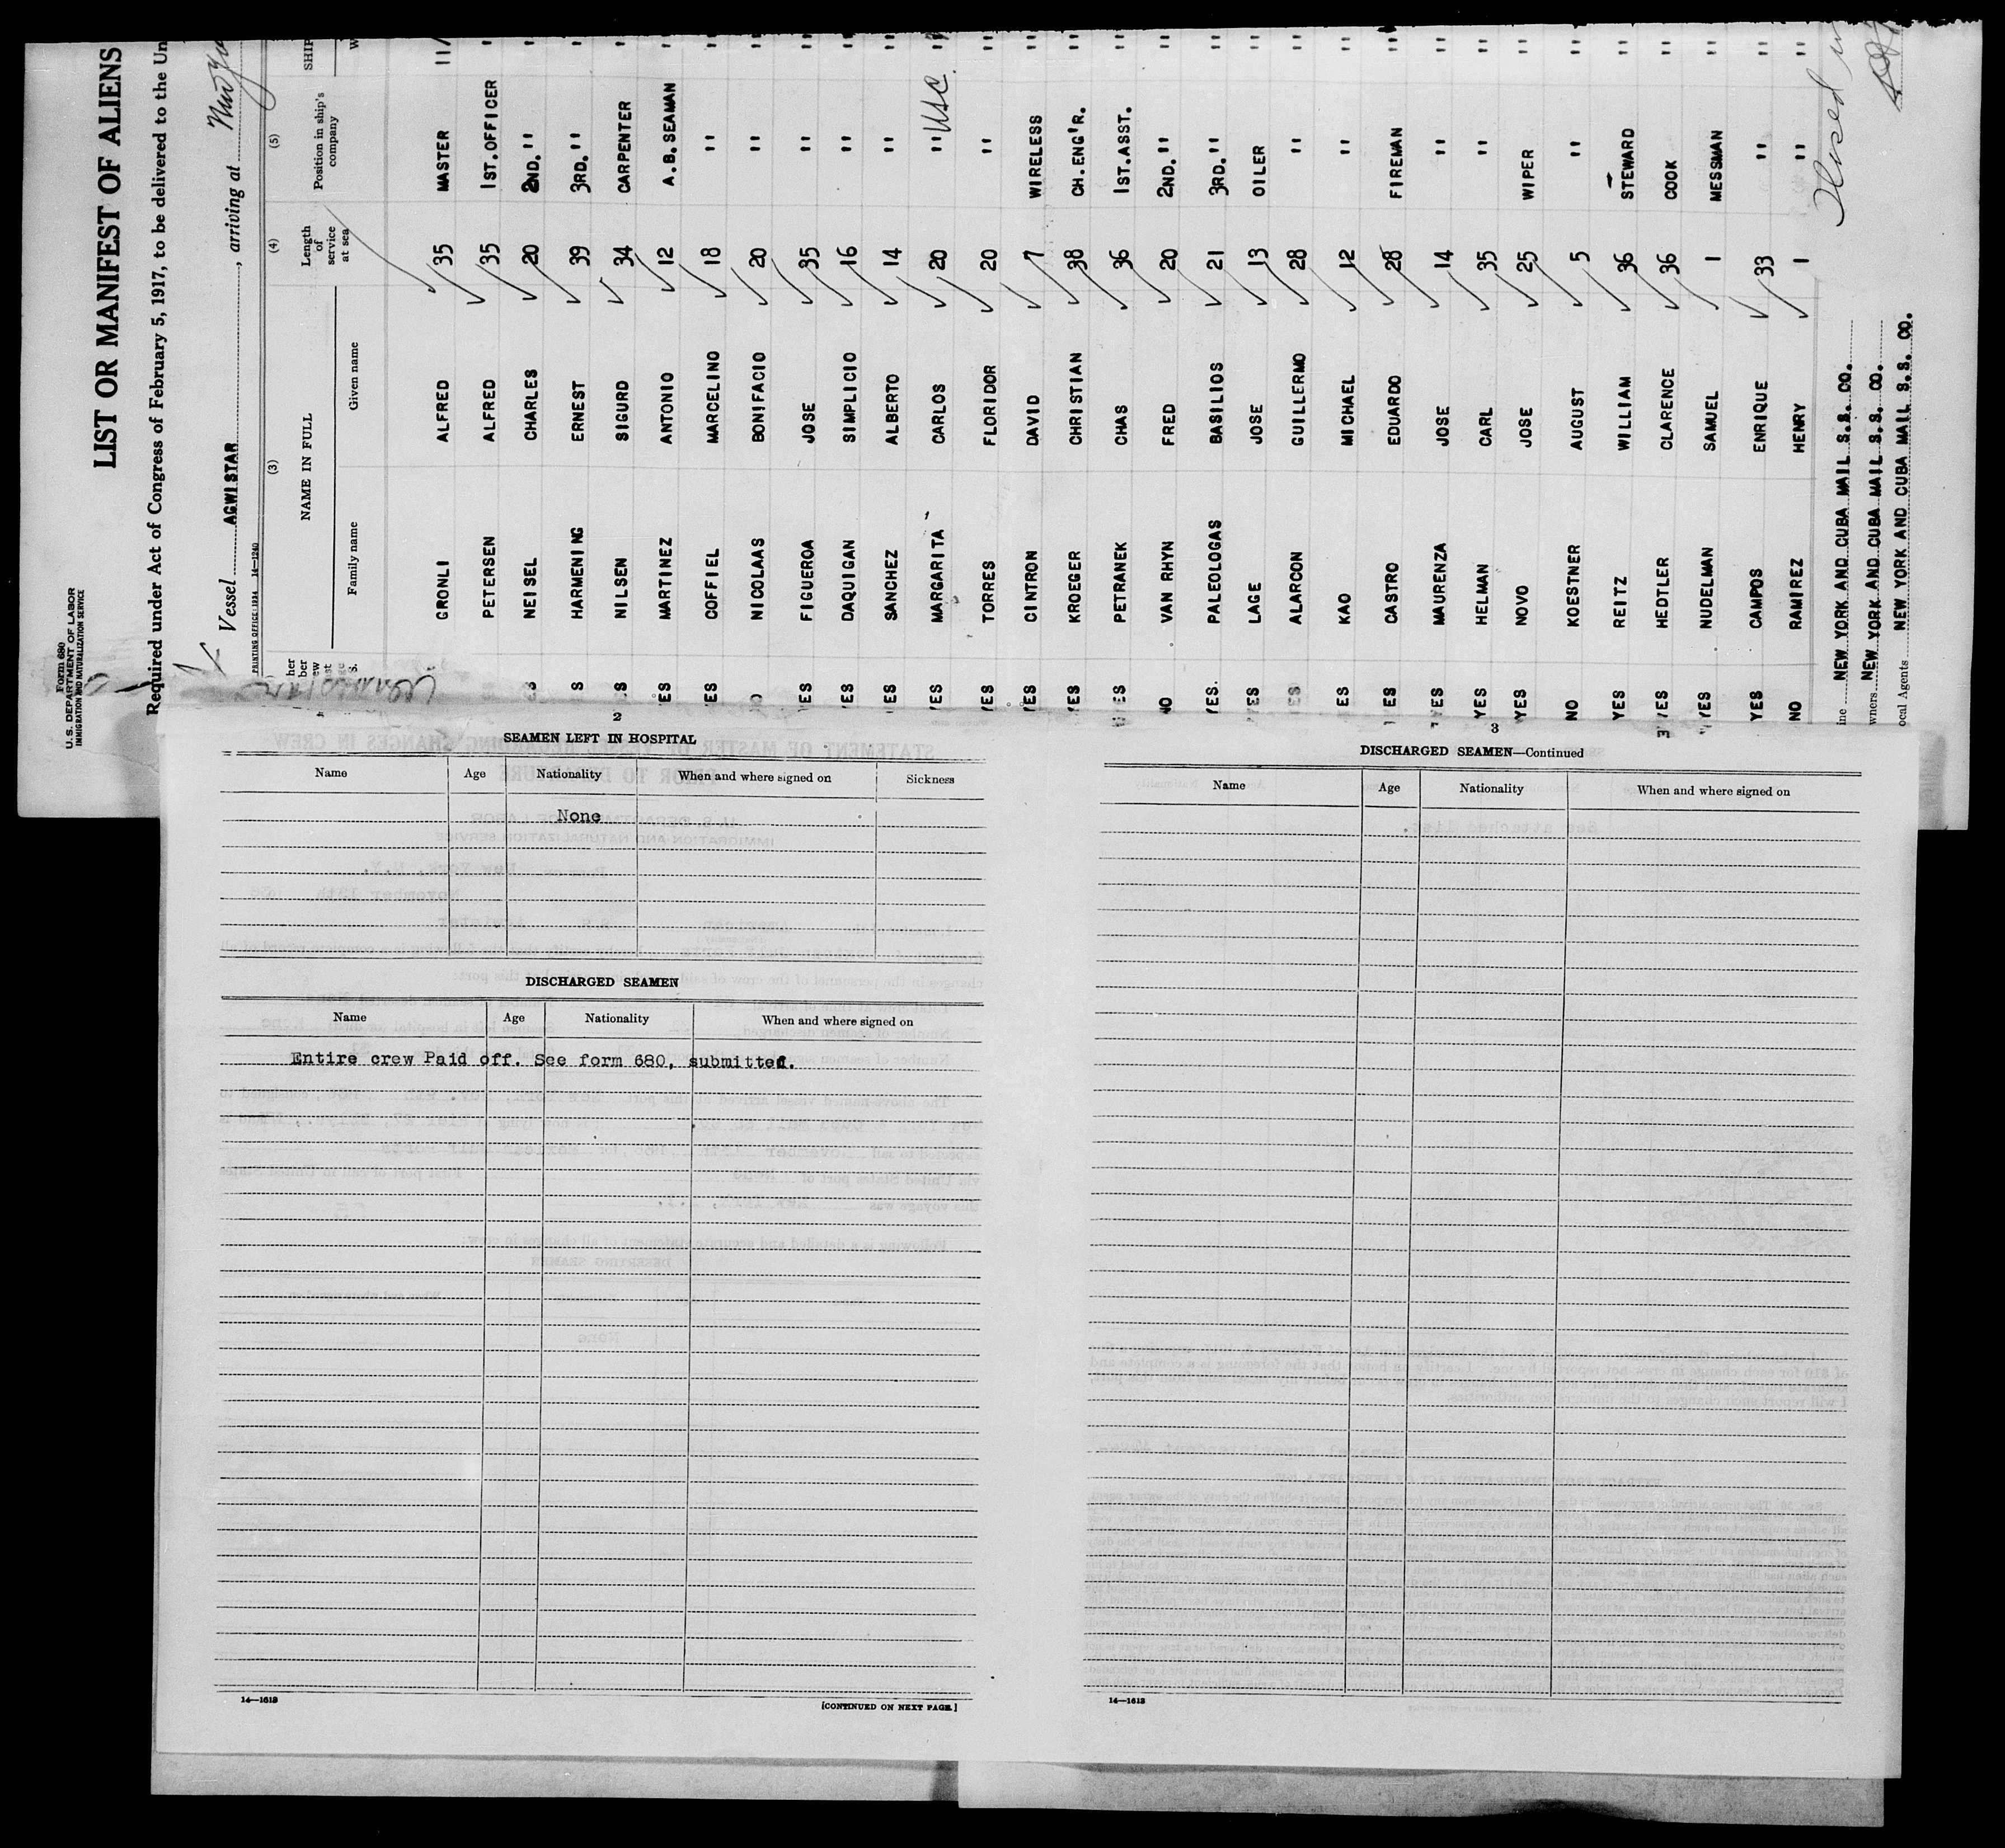 Form 680
U. S. DEPARTMENT OF LABOR
IMMIGRATION AND NATURALIZATION SERVICE
LIST OR MANIFEST OF ALIENS
Required under Act of Congress of February 5, 1917, to be delivered to the Un
Vessel AGWISTAR, arriving at
PRINTING OFFICE: 1934 14—1240
(3) (4) (5)
NAME IN FULL Length of service at sea Position in ship's company SHIP
Family name Given name
GRONLI ALFRED 35 MASTER 11/
PETERSEN ALFRED 35 1ST. OFFICER "
NEISEL CHARLES 20 2ND. " "
HARMENING ERNEST 39 3RD. " "
NILSEN SIGURD 34 CARPENTER "
YES MARTINEZ ANTONIO 12 A.B. SEAMAN "
YES COFFIEL MARCELINO 18 " "
NICOLAAS BONIFACIO 20 " "
YES FIGUEROA JOSE 35 " "
YES DAQUIGAN SIMPLICIO 16 " "
YES SANCHEZ ALBERTO 14 " "
YES MARGARITA CARLOS 20 " USC "
YES TORRES FLORIDOR 20 " "
YES CINTRON DAVID 7 WIRELESS "
YES KROEGER CHRISTIAN 38 CH. ENG'R. "
YES PETRANEK CHAS 36 1ST. ASST. "
NO VAN RHYN FRED 20 2ND. " "
YES. PALEOLOGAS BASILIOS 21 3RD. " "
YES LAGE JOSE 13 OILER "
YES ALARCON GUILLERMO 28 " "
YES KAO MICHAEL 12 " "
YES CASTRO EDUARDO 28 FIREMAN "
YES MAURENZA JOSE 14 " "
YES HELMAN CARL 35 " "
YES NOVO JOSE 25 WIPER "
NO KOESTNER AUGUST 5 " "
YES REITZ WILLIAM 36 STEWARD "
YES HEDTLER CLARENCE 36 COOK "
YES NUDELMAN SAMUEL 1 MESSMAN "
YES CAMPOS ENRIQUE 33 " "
NO RAMIREZ HENRY 1 " "
ine NEW YORK AND CUBA MAIL S.S. CO.
wners NEW YORK AND CUBA MAIL S.S. CO.
ocal Agents NEW YORK AND CUBA MAIL S.S. CO.
2
SEAMEN LEFT IN HOSPITAL
Name Age Nationality When and where signed on Sickness
None
DISCHARGED SEAMEN
Name Age Nationality When and where signed on
Entire crew Paid off. See form 680, submitted.
14—1613 [CONTINUED ON NEXT PAGE.]
3
DISCHARGED SEAMEN—Continued
Name Age Nationality When and where signed on
14—1613